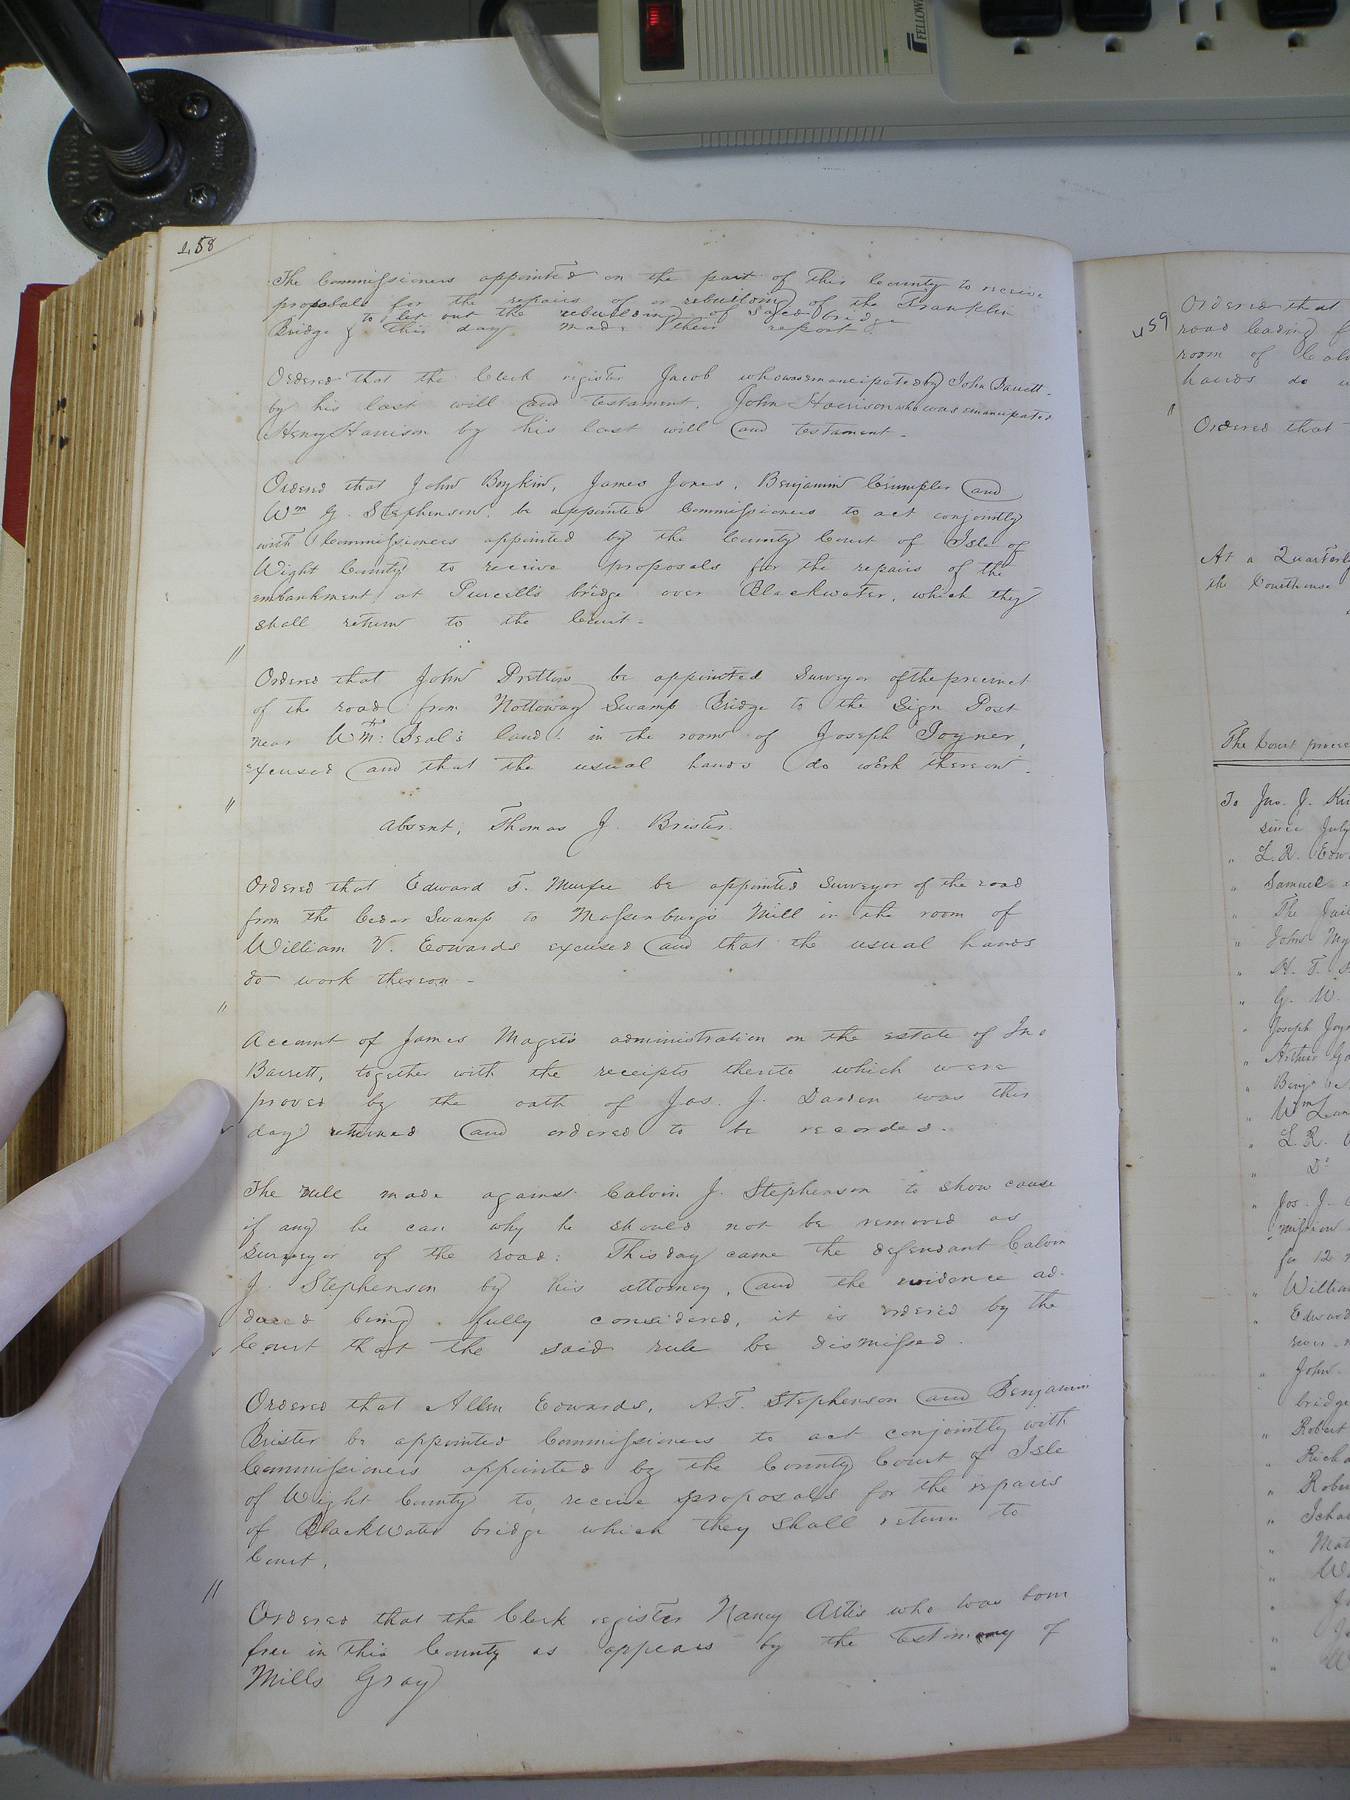 458
The Commissioners appointed on the part of this County to receive
proposals for the repairs of or rebuilding of the Franklin
to let out the rebuilding of said bridge
Bridge & this day made their report
Ordered that the Clerk register Jacob who was emancipated by John Barrett
by his last will and testament. John Harrison who was emancipated
Henry Harrison by his last will and testament.
Ordered that John Boykin, James Jones, Benjamin Crumpler and
Wm G. Stephenson be appointed Commissioners to act conjointly
with Commissioners appointed by the County Court of Isle of
Wight County to receive proposals for the repairs of the
embankment at Purcell's bridge over Blackwater, which they
shall return to the Court.
"
Ordered that John Pretlow be appointed Surveyor of the precinct
of the road from Nottoway Swamp Bridge to the Sign Post
near Wm: Beal's land in the room of Joseph Joyner,
excused and that the usual hands do work thereon.
"
Absent, Thomas J. Brister.
Ordered that Edward T. Murfee be appointed Surveyor of the road
from the Cedar Swamp to Massenburg's Mill in the room of
William V. Edwards excused and that the usual hands
do work thereon -
"
Account of James Magee's administration on the estate of Jno
Barrett, together with the receipts thereto which were
proved by the oath of Jas. J. Darden was this
day returned and ordered to be recorded.
The rule made against Calvin J. Stephenson to show cause
if any he can why he should not be removed as
Surveyor of the road: This day came the defendant Calvin
J. Stephenson by his attorney, and the evidence ad-
duced being fully considered, it is ordered by the
Court that the said rule be dismissed.
Ordered that Allen Edwards, A.T. Stephenson and Benjamin
Brister be appointed Commissioners to act conjointly with
Commissioners appointed by the County Court of Isle
of Wight County to receive proposals for the repairs
of BlackWater bridge which they shall return to
Court.
"
Ordered that the Clerk register Nancy Artis who was born
free in this County as appears by the testimony of
Mills Gray
459
Ordered that
road leading
room of
hands do
"
Ordered that
At a Quarterly
the Courthouse
The Court
To Jno. J.
since July
" L. R. Edw
" Samuel
" The Jail
" John
" H. T.
" G. W.
" Joseph
" Arthur
" Benj
" Wm
" L. R.
" Do
" Jos. J.
for 12
" William
" Edward
" John
bridge
" Robert
" Rich
" Rober
FELLOW